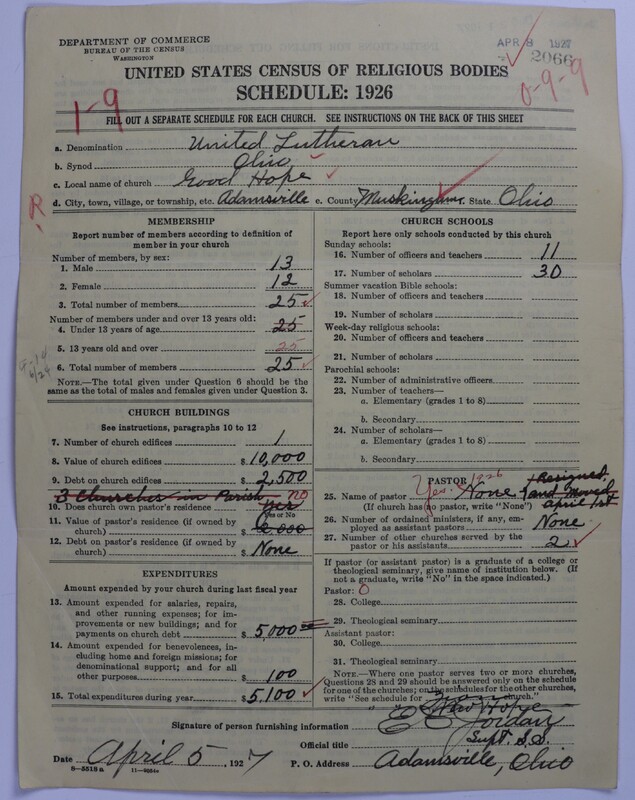 DEPARTMENT OF COMMERCE
BUREAU OF THE CENSUS
WASHINGTON
APR 8 1927
2066
UNITED STATES CENSUS OF RELIGIOUS BODIES
SCHEDULE: 1926
1-9
0-9-9
FILL OUT A SEPARATE SCHEDULE FOR EACH CHURCH. SEE INSTRUCTIONS ON THE BACK OF THIS SHEET
a. Denomination United Lutheran
b. Synod Ohio
c. Local name of church Good Hope
d. City, town, village, or township, etc. Adamsville e. County Muskingum f. State Ohio
R
MEMBERSHIP
Report number of members according to definition of
member in your church
Number of members, by sex:
1. Male 13
2. Female 12
3. Total number of members 25
Number of members under and over 13 years old:
4. Under 13 years of age 25
5. 13 years old and over 25
6. Total number of members 25
NOTE.—The total given under Question 6 should be the
same as the total of males and females given under Question 3.
CHURCH BUILDINGS
See instructions, paragraphs 10 to 12
7. Number of church edifices 1
8. Value of church edifices $ 10,000
9. Debt on church edifices $ 2,500
3 Churches in Parish no
10. Does church own pastor's residence? yes
Yes or No
11. Value of pastor's residence (if owned by
church) $ 6,000
12. Debt on pastor's residence (if owned by
church) $ None
EXPENDITURES
Amount expended by your church during last fiscal year
13. Amount expended for salaries, repairs,
and other running expenses; for im-
provements or new buildings; and for
payments on church debt $ 5,000
14. Amount expended for benevolences, in-
cluding home and foreign missions; for
denominational support; and for all
other purposes $ 100
15. Total expenditures during year $ 5,100
CHURCH SCHOOLS
Report here only schools conducted by this church
Sunday schools:
16. Number of officers and teachers 11
17. Number of scholars 30
Summer vacation Bible schools:
18. Number of officers and teachers
19. Number of scholars
Week-day religious schools:
20. Number of officers and teachers
21. Number of scholars
Parochial schools:
22. Number of administrative officers
23. Number of teachers—
a. Elementary (grades 1 to 8)
b. Secondary
24. Number of scholars—
a. Elementary (grades 1 to 8)
b. Secondary
PASTOR
Yes. 1926
Resigned
25. Name of pastor None and Moved
(If church has no pastor, write "None") April 1st
26. Number of ordained ministers, if any, em-
ployed as assistant pastors None
27. Number of other churches served by the
pastor or his assistants 2
If pastor (or assistant pastor) is a graduate of a college or
theological seminary, give name of institution below. (If
not a graduate, write "No" in the space indicated.)
Pastor: 0
28. College
29. Theological seminary
Assistant pastor:
30. College
31. Theological seminary
NOTE.—Where one pastor serves two or more churches,
Questions 28 and 29 should be answered only on the schedule
for one of the churches; on the schedules for the other churches,
write "See schedule for church."
New Hope
Signature of person furnishing information E E Jordan
Official title Supt. S.S.
Date April 5, 1927 P. O. Address Adamsville, Ohio